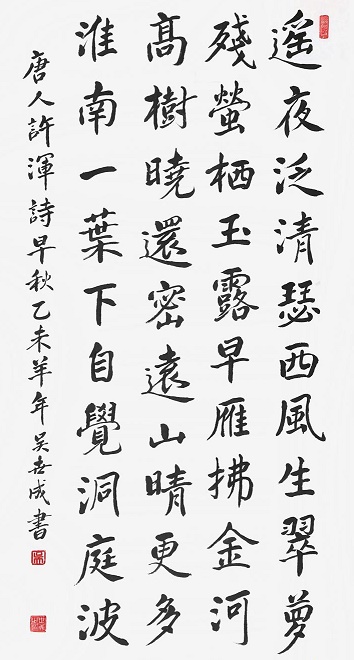 遙夜泛清瑟西風生翠萝
殘螢栖玉露早雁拂金河
髙樹曉還密遠山晴更多
淮南一葉下自覺洞庭波
唐人許渾詩早秋乙未羊年吳成書